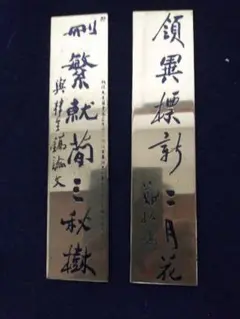 刪繁就簡三秋樹
與韓生鎬論文
領異標新二月花
鄭